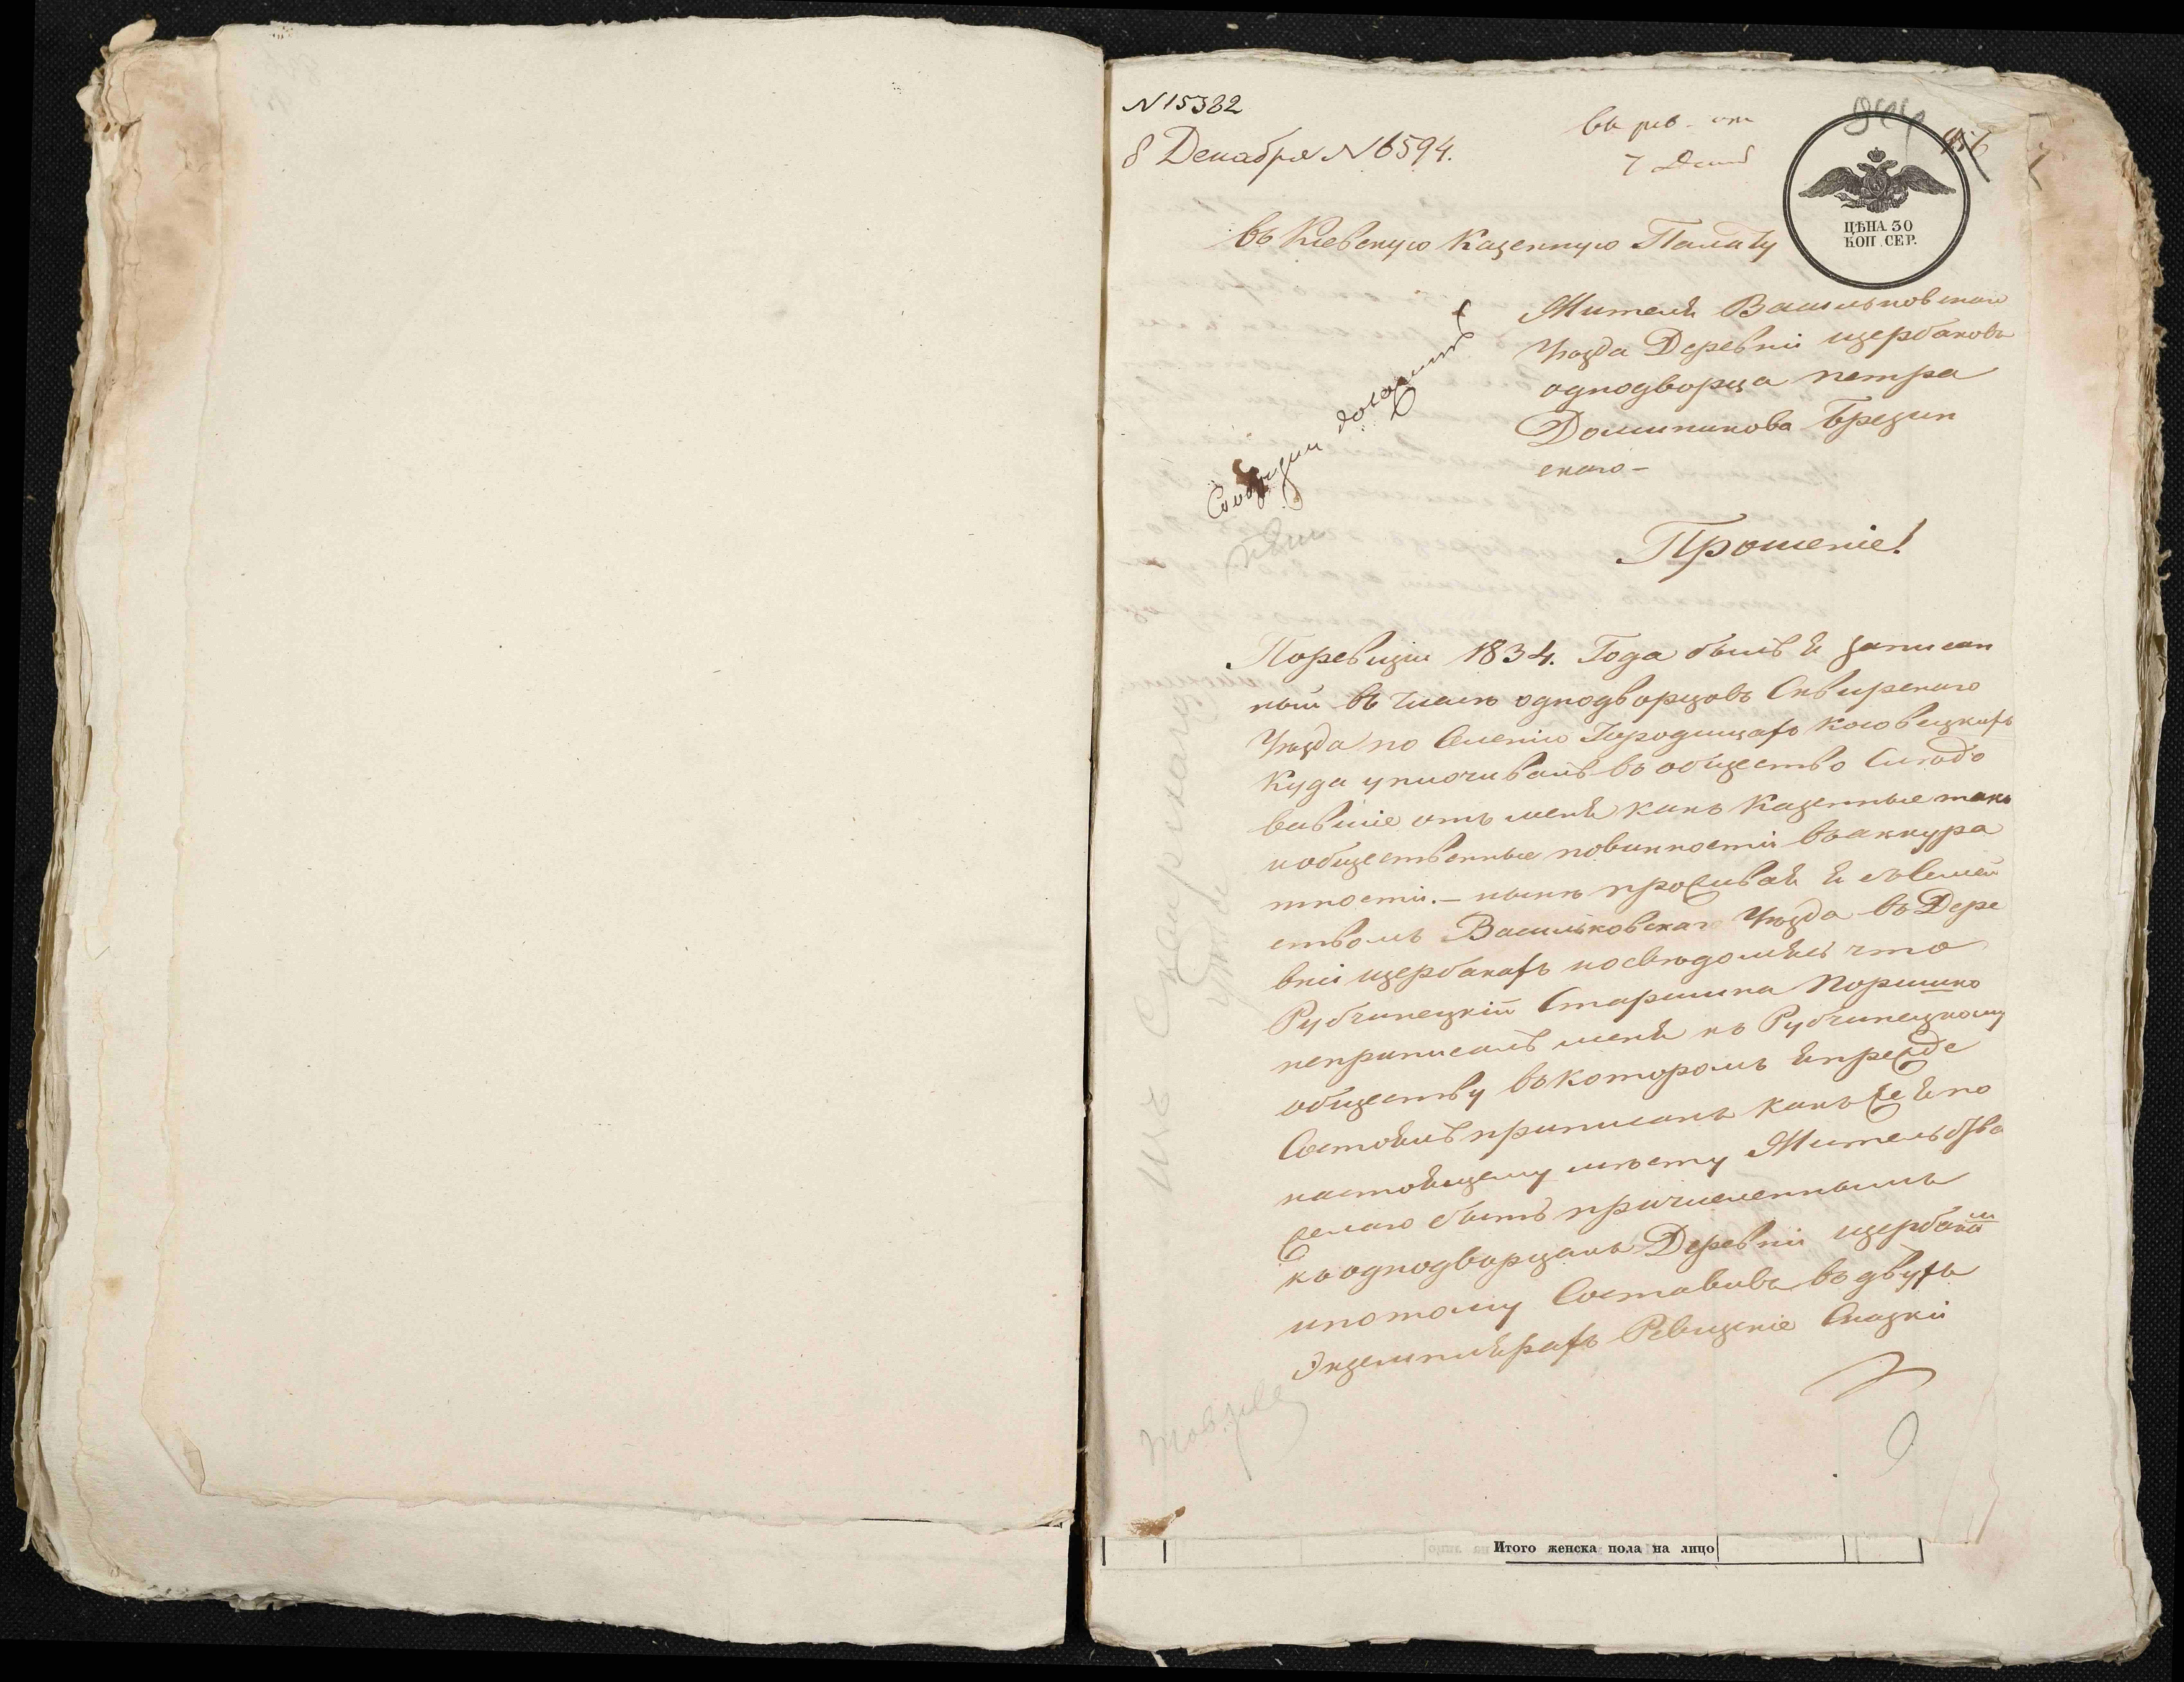 N 15382
8 Декабря N 6594.
ЦѢНА 30
КОП. СЕР.
Въ Кіевскую Казенную Палату
Жителя Васильковскаго
Уѣзда Деревни щербаковъ
однодворца петра
Доминикова Брезин
скаго-
Прошеніе!
По ревизіи 1834. Года былъ я записан
ный въ числѣ однодворцовъ Сквирскаго
Уѣзда по Селенію Городищахъ
Куда уплочивалъ въ общество Слѣдо
вавшіе отъ меня какъ Казенные такъ
и общественные повинности въ аккура
тности. – нынѣ проживая я съ Семей
ствомъ Васильковскаго Уѣзда въ Дере
вни щербакахъ посвѣдомясь что
Рубчинецкій Старшина
неприписалъ меня къ Рубчинецкому
обществу въ Которомъ я прежде
Состоялъ приписанъ какъ же я по
настоящему мѣсту Жительства
желаю быть причисленнымъ
къ однодворцамъ Деревни щербаки
и потому Составивъ въ двухъ
Экземплярахъ Ревизкіе Сказки
изъ Сквирскаго
уѣзда
Итого женска пола на лицо